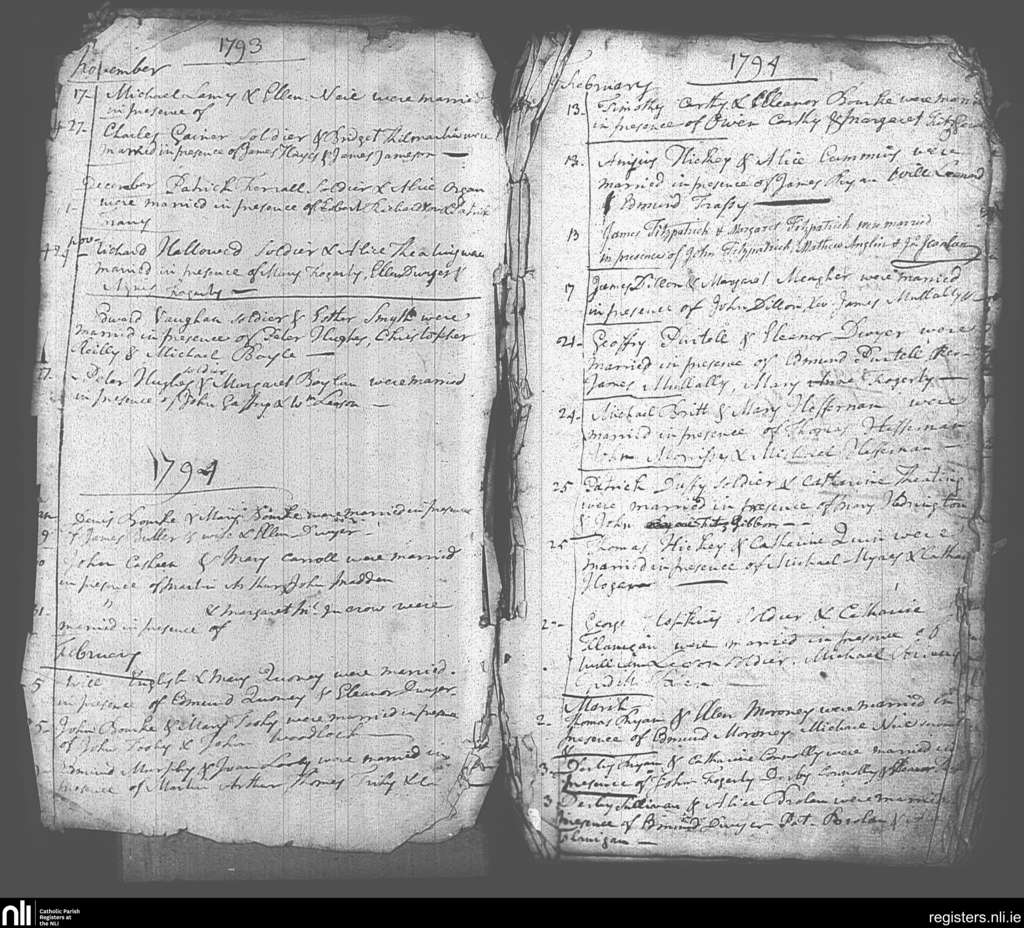 1793
November
17- Michael Lamy & Ellen Neil were married
in presence of
27- Charles Gainor Soldier & Bridget were
married in presence of James Hayes & James Jameson
December Patrick Soldier & Alice Organ
1- were married in presence of Robert Richardson & Patrick
Richard Hallowed Soldier & Alice were
married in presence of Mary Fogerty Ellen Dwyer &
Agnes Fogerty
Edward Vaughan Soldier & Esther Smyth were
married in presence of Peter Hughes Christopher
Reilly & Michael Boyle
soldier
Peter Hughes & Margaret Boylan were married
in presence of John Gaffny & Wm Leeson
1794
Denis Bourke & Mary Bourke were married in presence
9 of James Butler & wife & Ellen Dwyer
John Casheen & Mary Carroll were married
in presence of Martin Arthur, John Madden
" & Margaret were
married in presence of
February
5 Will English & Mary Quoney were married
in presence of Edmund Quoney & Eleanor Dwyer
5- John Bourke & Mary Tooby were married in presence
of John Tooby & John Woodlock
Edmund Murphy & Joan Looby were married in
presence of Martin Arthur Thomas
1794
February
13- Timothy Carthy & Elleanor Bourke were married
in presence of Owen Carthy & Margaret
13- Hickey & Alice Cummins were
married in presence of James Ryan Will Leonard
& Edmund Trassy
13 James Fitzpatrick & Margaret Fitzpatrick were married
in presence of John Fitzpatrick Mathew Anglin & Jn Scanlan
17 James Dillon & Margaret Meagher were married
in presence of John Dillon Rev James Mullally
21- Geoffry Purtell & Eleanor Dwyer were
married in presence of Edmund Purtell Rev
James Mullally, Mary Fogerty
24- Michael Britt & Mary Heffernan were
married in presence of Thomas Heffernan
John Morrissy & Michael Heffernan
25 Patrick Duffy Soldier & Catharine
were married in presence of Mary
& John Fitz Gibbon
25 Thomas Hickey & Catherine Quin were
married in presence of Michael & Cathar
Hogan
2- George Hopkins Soldier & Catharine
Flanigan were married in presence of
William Leeson Soldier, Michael
March
2- Thomas Ryan & Ellen Moroney were married in
presence of Edmund Moroney Michael
3- Derby Ryan & Catharine Connolly were married in
presence of John Fogerty Derby Connolly & Eleanor
3 Derby Sullivan & Alice Brolan were married
presence of Edmund Dwyer Pat Brolan &
Flanigan
nli Catholic Parish
Registers at
the NLI
registers.nli.ie